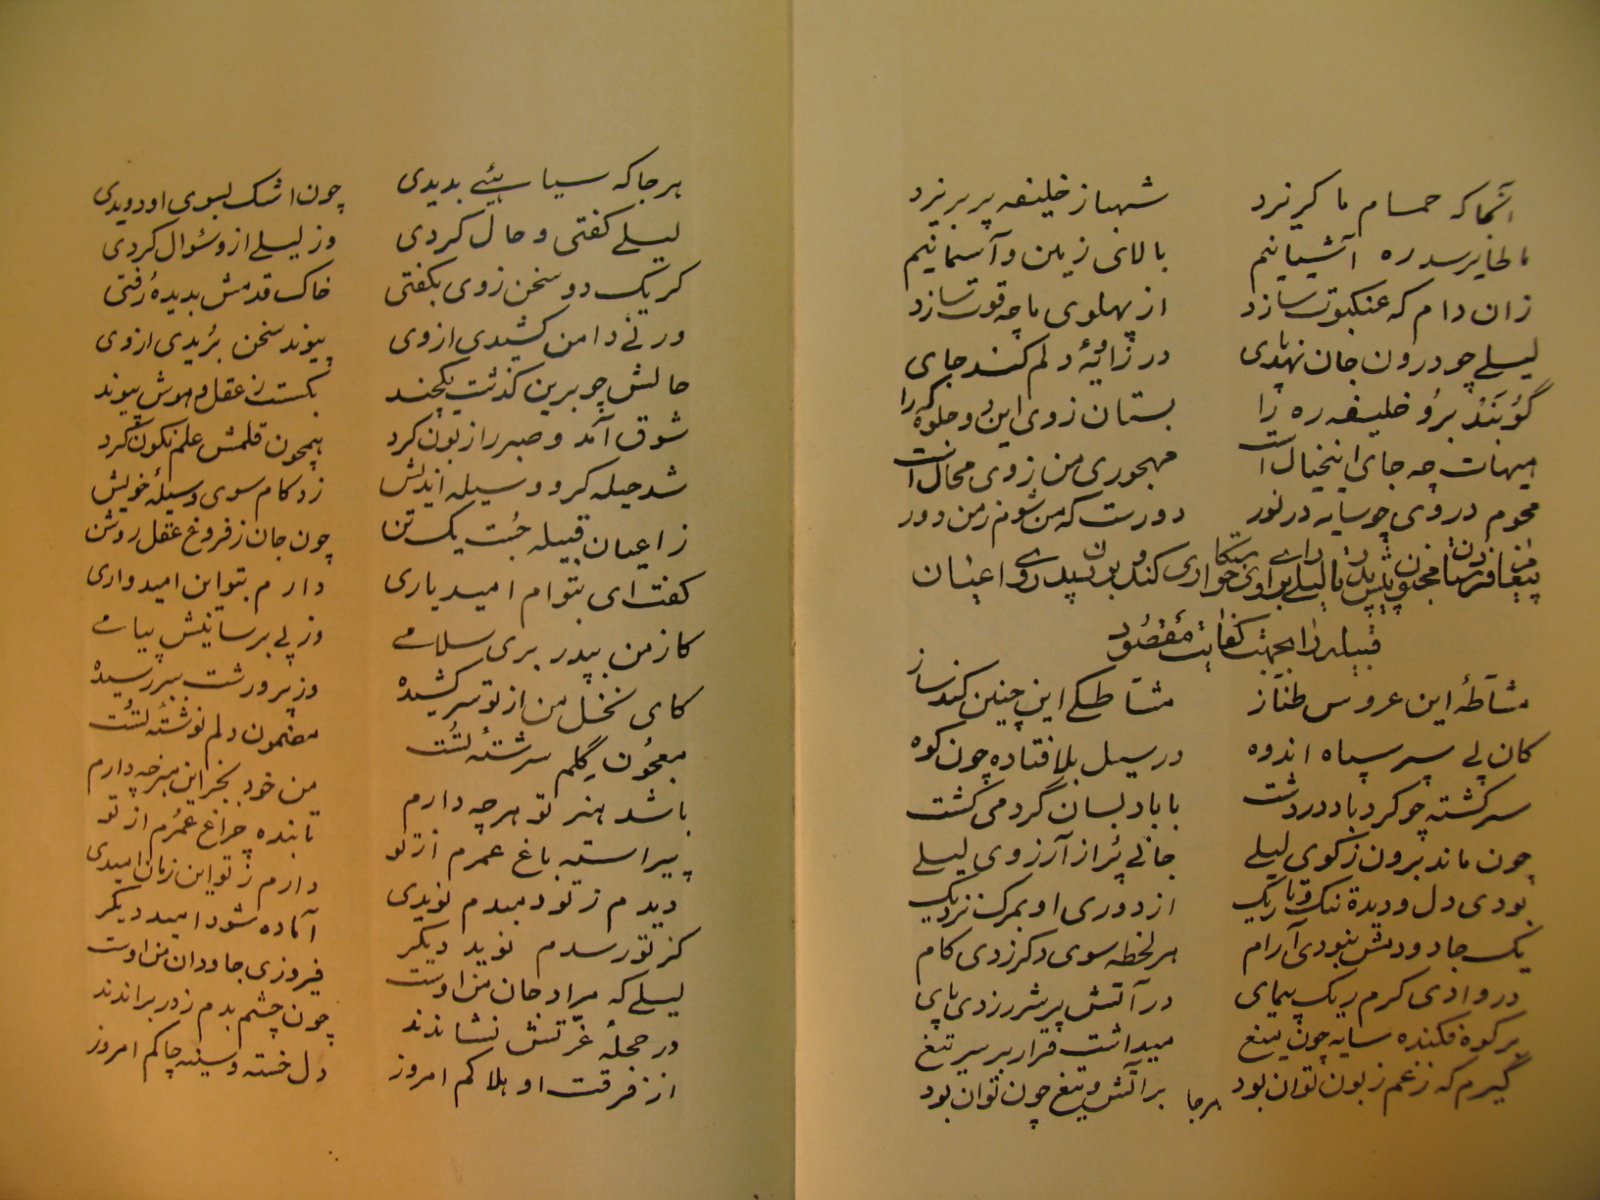 آنجا که حمام ما گریزد شهباز خلیفه پر بریزد
ما طایر سدره آشیانیم بالای زمین و آسمانیم
زان دام که عنکبوت سازد از پهلوی ما چه قوت سازد
لیلے چو درون جان نهد پای در زاویهٔ دلم کند جای
گو بند برو خلیفه ره را بستان ز وی این دو جلوه گه را
هیهات چه جای این خیال است مهجوری من ز وی محال است
محوم در وی چو سایه در نور دورست که من شوم ز من دور
پیغام فرستادن مجنون پیش پدر تا لیلے را برای وی خواستگاری کند و بردن پدر وے اعیان
قبیله را بجهت کفایت مقصود
مشاطهٔ این عروس طناز مشاطگے این چنین کند ساز
کان بے سر سپاه اندوه در سیل بلا فتاده چون کوه
سرگشته چو گردباد در دشت با باد بسان گرد می گشت
چون ماند برون ز کوی لیلے جانے پر از آرزوی لیلے
بودی دل و دیدهٔ تنک و تاریک از دوری او بمرگ نزدیک
یک جا و دمش نبودی آرام هر لحظه سوی دگر زدی گام
در وادی گرم ریک پیمای در آتش پر شرر زدی پای
بر کوه فکنده سایه چون میغ میداشت قرار بر سر تیغ
گیرم که ز غم زبون توان بود بر آتش و تیغ چون توان بود
هرجا
هرجا که سیاهیئے بدیدی چون اشک بسوی او دویدی
لیلے گفتی و حال کردی وز لیلے ازو سؤال کردی
گر یک دو سخن ز وی بگفتی خاک قدمش بدیده رفتی
ور نے دامن کشیدی از وی پیوند سخن بریدی از وی
حالش چو برین گذشت یکچند بگسست ز عقل و هوش پیوند
شوق آمد و صبر را زبون کرد همچون قلمش علم نگون کرد
شد حیله گر و وسیله اندیش زد گام سوی وسیلهٔ خویش
ز اعیان قبیله جست یک تن چون جان ز فروغ عقل روشن
گفت ای بتوام امید یاری دارم بتو این امیدواری
کاز من بپدر بری سلامے وز پے برسانیش پیامے
کای نخل من از تو سر کشیده وز پرورشت ببر رسیده
معجون گلم سرشتهٔ تست مضمون دلم نوشتهٔ تست
باشد هنر تو هر چه دارم من خود بجز این هنر چه دارم
پیراسته باغ عمرم از تو تابنده چراغ عمرم از تو
دیدم ز تو دمبدم نویدی دارم ز تو این زمان امیدی
کز تو رسدم نوید دیگر آماده شود امید دیگر
لیلے که مراد جان من اوست فیروزی جاودان من اوست
در حجلهٔ عزتش نشاندند چون چشم بدم ز در براندند
از فرقت او هلاکم امروز دل خسته و سینه چاکم امروز